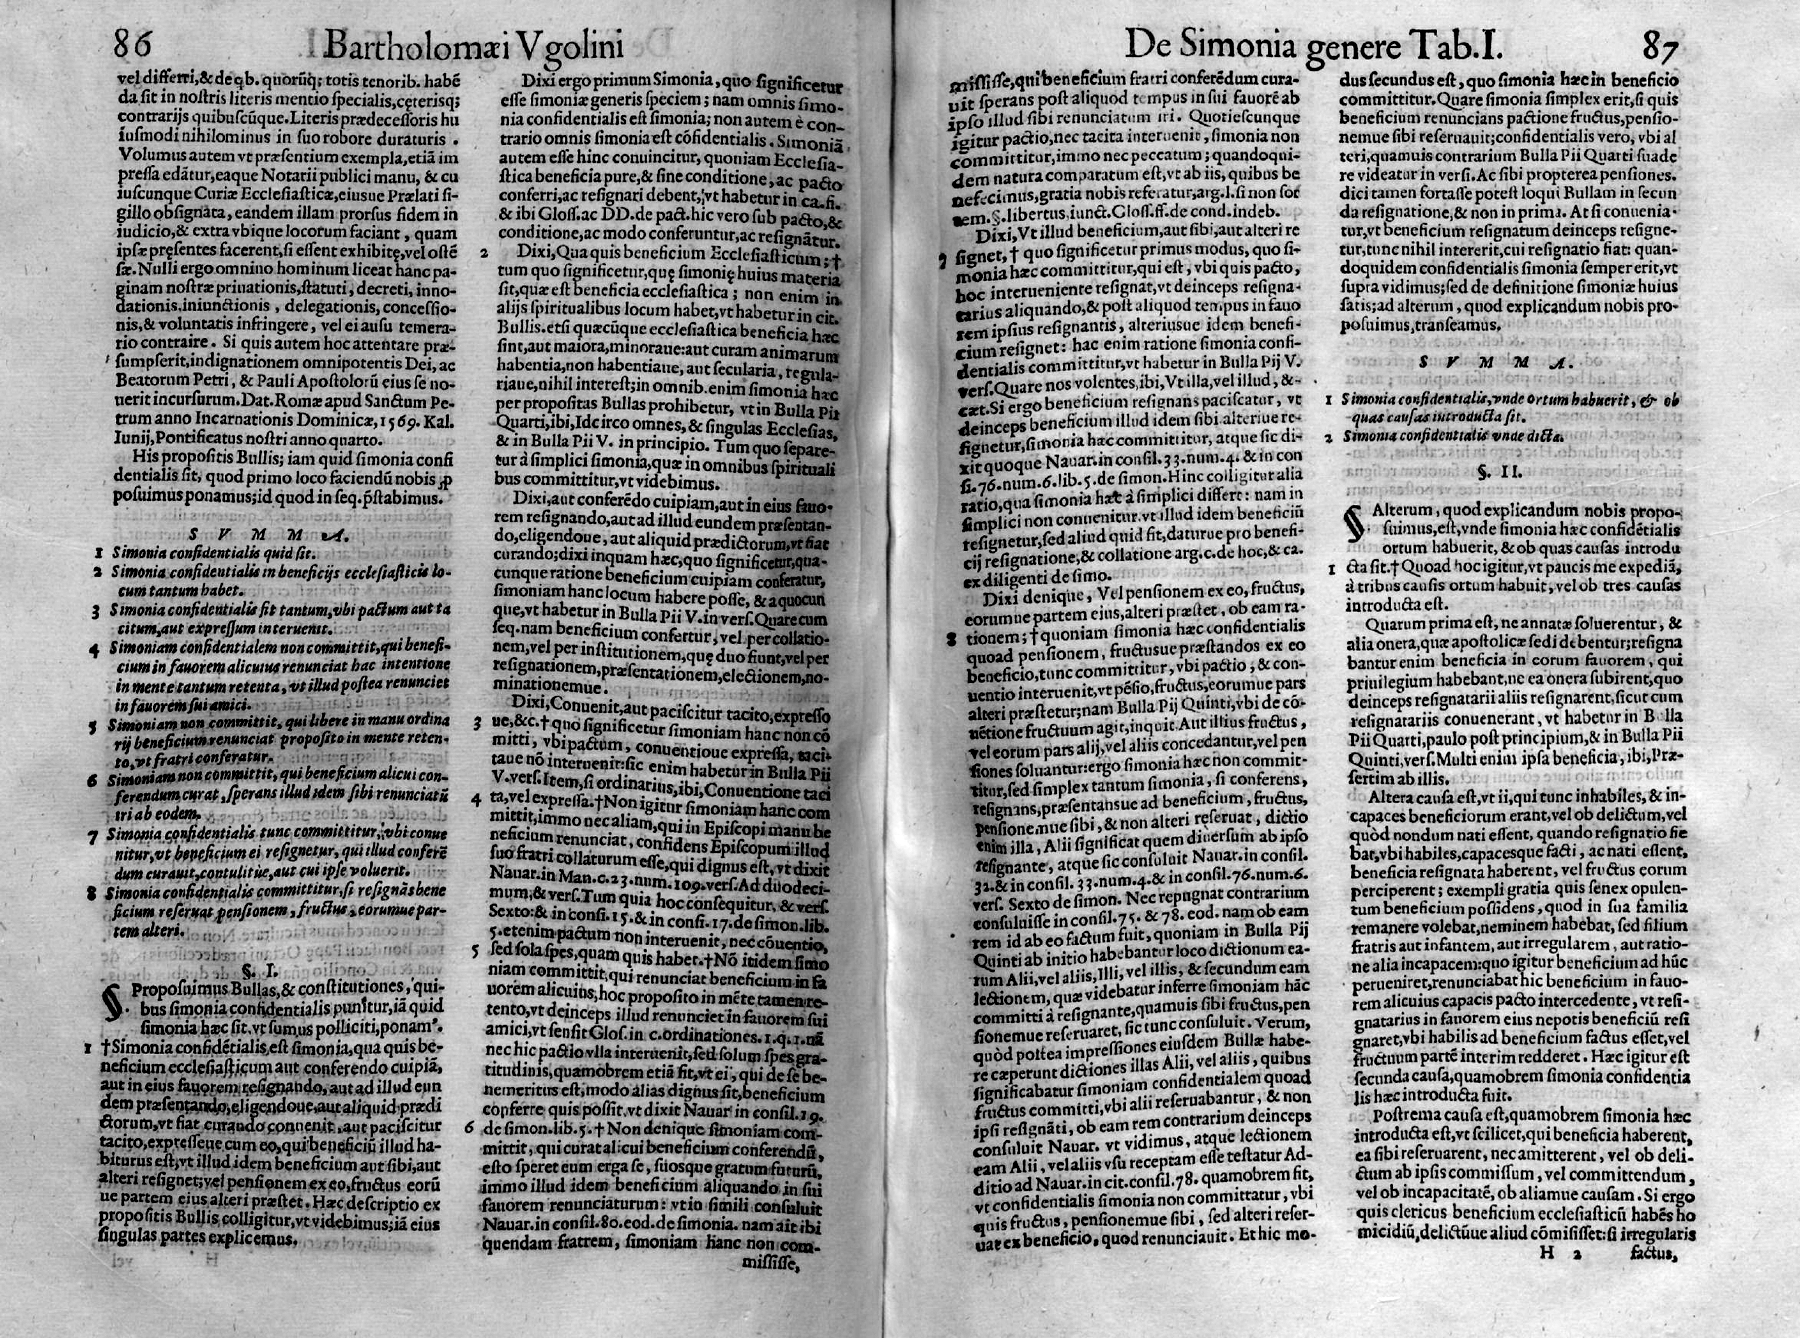 86 Bartholomæi Vgolini
vel differri, & de qb. quorūq; totis tenorib. habē
da sit in nostris literis mentio specialis, cęterisq;
contrarijs quibuscūque. Literis prædecessoris hu
iusmodi nihilominus in suo robore duraturis.
Volumus autem vt præsentium exempla, etiā im
pressa edātur, eaque Notarii publici manu, & cu
iuscunque Curiæ Ecclesiasticæ, eiusue Prælati si-
gillo obsignata, eandem illam prorsus fidem in
iudicio, & extra vbique locorum faciant, quam
ipsæ pręsentes facerent, si essent exhibitę, vel ostē
sæ. Nulli ergo omnino hominum liceat hanc pa-
ginam nostræ priuationis, statuti, decreti, inno-
dationis. iniunctionis, delegationis, concessio-
nis, & voluntatis infringere, vel ei ausu temera-
rio contraire. Si quis autem hoc attentare præ-
sumpserit, indignationem omnipotentis Dei, ac
Beatorum Petri, & Pauli Apostolorū eius se no-
uerit incursurum. Dat. Romæ apud Sanctum Pe-
trum anno Incarnationis Dominicæ, 1569. Kal.
Iunij, Pontificatus nostri anno quarto.
His propositis Bullis; iam quid simonia confi
dentialis sit, quod primo loco faciendū nobis ꝓ
posuimus ponamus; id quod in seq. p̄stabimus.
S V M M A.
1 Simonia confidentialis quid sit.
2 Simonia confidentialis in beneficijs ecclesiasticis lo-
cum tantum habet.
3 Simonia confidentialis fit tantum, vbi pactum aut ta
citum, aut expressum interuenit.
4 Simoniam confidentialem non committit, qui benefi-
cium in fauorem alicuius renunciat hac intentione
in mente tantum retenta, vt illud postea renunciet
in fauorem sui amici.
5 Simoniam non committit, qui libere in manu ordina
rij beneficium renunciat proposito in mente reten-
to, vt fratri conferatur.
6 Simoniam non committit, qui beneficium alicui con-
ferendum curat, sperans illud idem sibi renunciatū
iri ab eodem.
7 Simonia confidentialis tunc committitur, vbi conue
nitur, vt beneficium ei resignetur, qui illud conferē
dum curauit, contulitúe, aut cui ipse voluerit.
8 Simonia confidentialis committitur, si resignās bene
ficium reseruat pensionem, fructus, eorumue par-
tem alteri.
§. I.
§. Proposuimus Bullas, & constitutiones, qui-
bus simonia confidentialis punitur, iā quid
simonia hæc sit, vt sumus polliciti, ponam9.
1 †Simonia confidētialis, est simonia, qua quis be-
neficium ecclesiasticum aut conferendo cuipiā,
aut in eius fauorem resignando, aut ad illud eun
dem præsentando, eligendoue, aut aliquid prædi
ctorum, vt fiat curando conuenit, aut paciscitur
tacito, expresseue cum eo, qui beneficiū illud ha-
biturus est, vt illud idem beneficium aut sibi, aut
alteri resignet; vel pensionem ex eo, fructus eorū
ue partem eius alteri præstet. Hæc descriptio ex
propositis Bullis colligitur, vt videbimus; iā eius
singulas partes explicemus.
Dixi ergo primum Simonia, quo significetur
esse simoniæ generis speciem; nam omnis simo-
nia confidentialis est simonia; non autem è con-
trario omnis simonia est cōfidentialis. Simoniā
autem esse hinc conuincitur, quoniam Ecclesia-
stica beneficia pure, & sine conditione, ac pacto
conferri, ac resignari debent, vt habetur in ca. fi.
& ibi Gloss. ac DD. de pact. hic vero sub pacto, &
conditione, ac modo conferuntur, ac resignātur.
2 Dixi, Qua quis beneficium Ecclesiasticum; †
tum quo significetur, quę simonię huius materia
sit, quæ est beneficia ecclesiastica; non enim in
alijs spiritualibus locum habet, vt habetur in cit.
Bullis. etsi quæcūque ecclesiastica beneficia hæc
sint, aut maiora, minoraue: aut curam animarum
habentia, non habentiaue, aut secularia, regula-
riaue, nihil interest; in omnib. enim simonia hæc
per propositas Bullas prohibetur, vt in Bulla Pii
Quarti, ibi, Idcirco omnes, & singulas Ecclesias,
& in Bulla Pii V. in principio. Tum quo separe-
tur à simplici simonia, quæ in omnibus spirituali
bus committitur, vt videbimus.
Dixi, aut conferēdo cuipiam, aut in eius fauo-
rem resignando, aut ad illud eundem præsentan-
do, eligendoue, aut aliquid prædictorum, vt fiat
curando; dixi inquam hæc, quo significetur, qua-
cunque ratione beneficium cuipiam conferatur,
simoniam hanc locum habere posse, & a quocun
que, vt habetur in Bulla Pii V. in vers. Quare cum
seq. nam beneficium confertur, vel per collatio-
nem, vel per institutionem, quę duo fiunt, vel per
resignationem, præsentationem, electionem, no-
minationemue.
Dixi, Conuenit, aut paciscitur tacito, expresso
3 ue, &c. † quo significetur simoniam hanc non cō
mitti, vbi pactum, conuentioue expressa, taci-
taue nō interuenit: sic enim habetur in Bulla Pii
V. vers. Item, si ordinarius, ibi, Conuentione taci
4 ta, vel expressa. †Non igitur simoniam hanc com
mittit, immo nec aliam, qui in Episcopi manu be
neficium renunciat, confidens Episcopum illud
suo fratri collaturum esse, qui dignus est, vt dixit
Nauar. in Man. c. 23. num. 109. vers. Ad duodeci-
mum, & vers. Tum quia hoc consequitur, & vers.
Sexto: & in consi. 15. & in consi. 17. de simon. lib.
5. etenim pactum non interuenit, nec cōuentio,
5 sed sola spes, quam quis habet. †Nō itidem simo
niam committit, qui renunciat beneficium in fa
uorem alicuius, hoc proposito in mēte tamen re-
tento, vt deinceps illud renunciet in fauorem sui
amici, vt sensit Glos. in c. ordinationes. 1. q. 1. nā
nec hic pactio vlla interuenit, sed solum spes gra-
titudinis, quamobrem etiā sit, vt ei, qui de se be-
nemeritus est, modo alias dignus sit, beneficium
conferre quis possit, vt dixit Nauar in consil. 19.
6 de simon. lib. 5. † Non denique simoniam com-
mittit, qui curat alicui beneficium conferendū,
esto speret eum erga se, suosque gratum futurū,
immo illud idem beneficium aliquando in sui
fauorem renunciaturum: vt in simili consuluit
Nauar. in consil. 80. eod. de simonia. nam ait ibi
quendam fratrem, simoniam hanc non com-
misisse,
De Simonia genere Tab. I. 87
misisse, qui beneficium fratri conferēdum cura-
uit sperans post aliquod tempus in sui fauorē ab
ipso illud sibi renunciatum iri. Quotiescunque
igitur pactio, nec tacita interuenit, simonia non
committitur, immo nec peccatum; quandoqui-
dem natura comparatum est, vt ab iis, quibus be
nefecimus, gratia nobis referatur, arg. l. si non sor
tem. §. libertus, iunct. Gloss. ff. de cond. indeb.
Dixi, Vt illud beneficium, aut sibi, aut alteri re
7 signet, † quo significetur primus modus, quo si-
monia hæc committitur, qui est, vbi quis pacto,
hoc interueniente resignat, vt deinceps resigna-
tarius aliquando, & post aliquod tempus in fauo
rem ipsius resignantis, alteriusue idem benefi-
cium resignet: hac enim ratione simonia confi-
dentialis committitur, vt habetur in Bulla Pij V.
vers. Quare nos volentes, ibi, Vt illa, vel illud, &-
cæt. Si ergo beneficium resignans paciscatur, vt
deinceps beneficium illud idem sibi alteriue re-
signetur, simonia hæc committitur, atque sic di-
xit quoque Nauar. in consil. 33. num. 4. & in con
si. 76. num. 6. lib. 5. de simon. Hinc colligitur alia
ratio, qua simonia hæc à simplici differt: nam in
simplici non conuenitur, vt illud idem beneficiū
resignetur, sed aliud quid fit, daturue pro benefi-
cij resignatione, & collatione arg. c. de hoc, & ca.
ex diligenti de simo.
Dixi denique, Vel pensionem ex eo, fructus,
eorumue partem eius, alteri præstet, ob eam ra-
8 tionem; † quoniam simonia hæc confidentialis
quoad pensionem, fructusue præstandos ex eo
beneficio, tunc committitur, vbi pactio, & con-
uentio interuenit, vt pēsio, fructus, eorumue pars
alteri præstetur; nam Bulla Pij Quinti, vbi de cō-
uētione fructuum agit, inquit Aut illius fructus,
vel eorum pars alij, vel aliis concedantur, vel pen
siones soluantur: ergo simonia hæc non commit-
titur, sed simplex tantum simonia, si conferens,
resignans, præsentansue ad beneficium, fructus,
pensionemue sibi, & non alteri reseruat, dictio
enim illa, Alii significat quem diuersum ab ipso
resignante, atque sic consuluit Nauar. in consil.
32. & in consil. 33. num. 4. & in consil. 76. num. 6.
vers. Sexto de simon. Nec repugnat contrarium
consuluisse in consil. 75. & 78. eod. nam ob eam
rem id ab eo factum fuit, quoniam in Bulla Pij
Quinti ab initio habebantur loco dictionum ea-
rum Alii, vel aliis, Illi, vel illis, & secundum eam
lectionem, quæ videbatur inferre simoniam hāc
committi à resignante, quamuis sibi fructus, pen
sionemue reseruaret, sic tunc consuluit. Verum,
quòd postea impressiones eiusdem Bullæ habe-
re cæperunt dictiones illas Alii, vel aliis, quibus
significabatur simoniam confidentialem quoad
fructus committi, vbi alii reseruabantur, & non
ipsi resignāti, ob eam rem contrarium deinceps
consuluit Nauar. vt vidimus, atque lectionem
eam Alii, vel aliis vsu receptam esse testatur Ad-
ditio ad Nauar. in cit. consil. 78. quamobrem fit,
vt confidentialis simonia non committatur, vbi
quis fructus, pensionemue sibi, sed alteri reser-
uat ex beneficio, quod renunciauit. Et hic mo-
dus secundus est, quo simonia hæc in beneficio
committitur. Quare simonia simplex erit, si quis
beneficium renuncians pactione fructus, pensio-
nemue sibi reseruauit; confidentialis vero, vbi al
teri, quamuis contrarium Bulla Pii Quarti suade
re videatur in versi. Ac sibi propterea pensiones.
dici tamen fortasse potest loqui Bullam in secun
da resignatione, & non in prima. At si conuenia-
tur, vt beneficium resignatum deinceps resigne-
tur, tunc nihil intererit, cui resignatio fiat: quan-
doquidem confidentialis simonia semper erit, vt
supra vidimus; sed de definitione simoniæ huius
satis; ad alterum, quod explicandum nobis pro-
posuimus, transeamus.
S V M M A.
1 Simonia confidentialis, vnde ortum habuerit, & ob
quas causas introducta sit.
2 Simonia confidentialis vnde dicta.
§. II.
§. Alterum, quod explicandum nobis propo-
suimus, est, vnde simonia hæc confidētialis
ortum habuerit, & ob quas causas introdu
1 cta sit. † Quoad hoc igitur, vt paucis me expediā,
à tribus causis ortum habuit, vel ob tres causas
introducta est.
Quarum prima est, ne annatæ soluerentur, &
alia onera, quæ apostolicæ sedi debentur; resigna
bantur enim beneficia in eorum fauorem, qui
priuilegium habebant, ne ea onera subirent, quo
deinceps resignatarii aliis resignarent, sicut cum
resignatariis conuenerant, vt habetur in Bulla
Pii Quarti, paulo post principium, & in Bulla Pii
Quinti, vers. Multi enim ipsa beneficia, ibi, Præ-
sertim ab illis.
Altera causa est, vt ii, qui tunc inhabiles, & in-
capaces beneficiorum erant, vel ob delictum, vel
quòd nondum nati essent, quando resignatio fie
bat, vbi habiles, capacesque facti, ac nati essent,
beneficia resignata haberent, vel fructus eorum
perciperent; exempli gratia quis senex opulen-
tum beneficium possidens, quod in sua familia
remanere volebat, neminem habebat, sed filium
fratris aut infantem, aut irregularem, aut ratio-
ne alia incapacem: quo igitur beneficium ad hūc
perueniret, renunciabat hic beneficium in fauo-
rem alicuius capacis pacto intercedente, vt resi-
gnatarius in fauorem eius nepotis beneficiū resi
gnaret, vbi habilis ad beneficium factus esset, vel
fructuum partē interim redderet. Hæc igitur est
secunda causa, quamobrem simonia confidentia
lis hæc introducta fuit.
Postrema causa est, quamobrem simonia hæc
introducta est, vt scilicet, qui beneficia haberent,
ea sibi reseruarent, nec amitterent, vel ob deli-
ctum ab ipsis commissum, vel committendum,
vel ob incapacitatē, ob aliamue causam. Si ergo
quis clericus beneficium ecclesiasticū habēs ho
micidiū, delictūue aliud cōmisisset: si irregularis
H 2 factus,